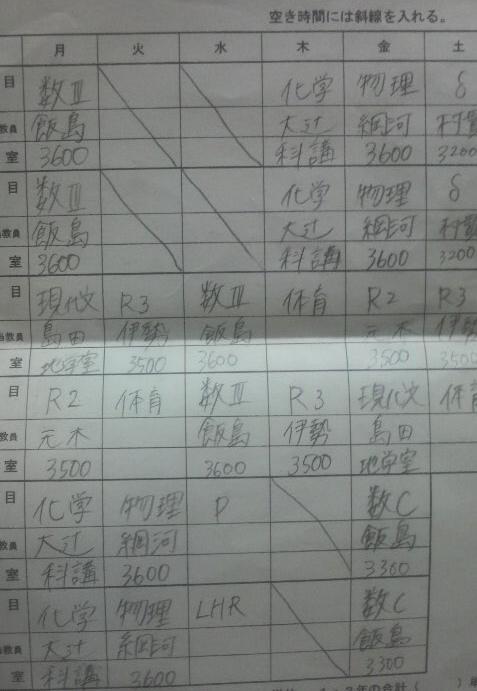 空き時間には斜線を入れる。
月 火 水 木 金 土
目 数Ⅲ 化学 物理 δ
教員 飯島 大辻 綱河
室 3600 科講 3600 3200
目 数Ⅲ 化学 物理 δ
当教員 飯島 大辻 綱河
室 3600 科講 3600 3200
目 現代文 R3 数Ⅲ 体育 R2 R3
当教員 島田 伊勢 飯島 元木 伊勢
室 地学室 3500 3600 3500 3500
目 R2 体育 数Ⅲ R3 現代文 体育
教員 元木 飯島 伊勢 島田
室 3500 3600 3500 地学室
目 化学 物理 P 数C
教員 大辻 綱河 飯島
室 科講 3600 3300
目 化学 物理 LHR 数C
当教員 大辻 綱河 飯島
室 科講 3600 3300